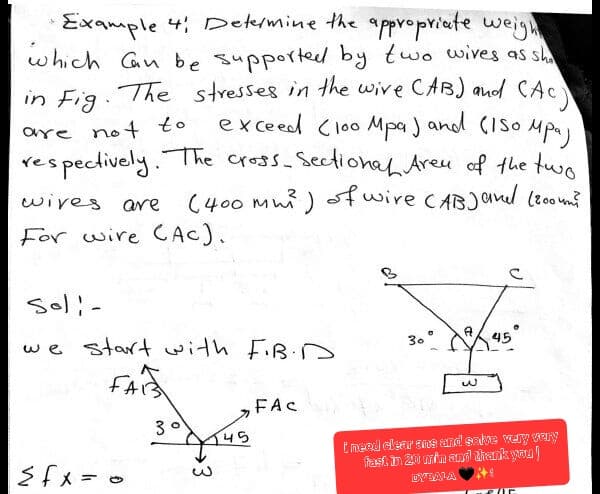 Example 4: Determine the appropriate weigh
which Can be supported by two wires as sho
in Fig. The stresses in the wire (AB) and (AC)
are not to exceed (100 Mpa) and (150 Mpa)
respectively. The cross-Sectional Area of the two
wires are (400 mm²) of wire (AB) and (200 mm²
For wire (AC).
Sol:-
we start with F.B.D
B
C
30°
A
45°
w
FAB
FAC
30
45
w
Σfx = 0
i need clear ans and solve very very
fast in 20 min and thank you |
DYBALA 🖤✨!